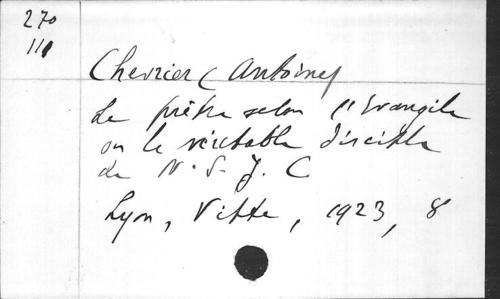 270
111
Chevrier (Antoine)
Le prêtre selon l'Evangile
ou le véritable disciple
de N. S. J. C
Lyon, Vitte, 1923, 8